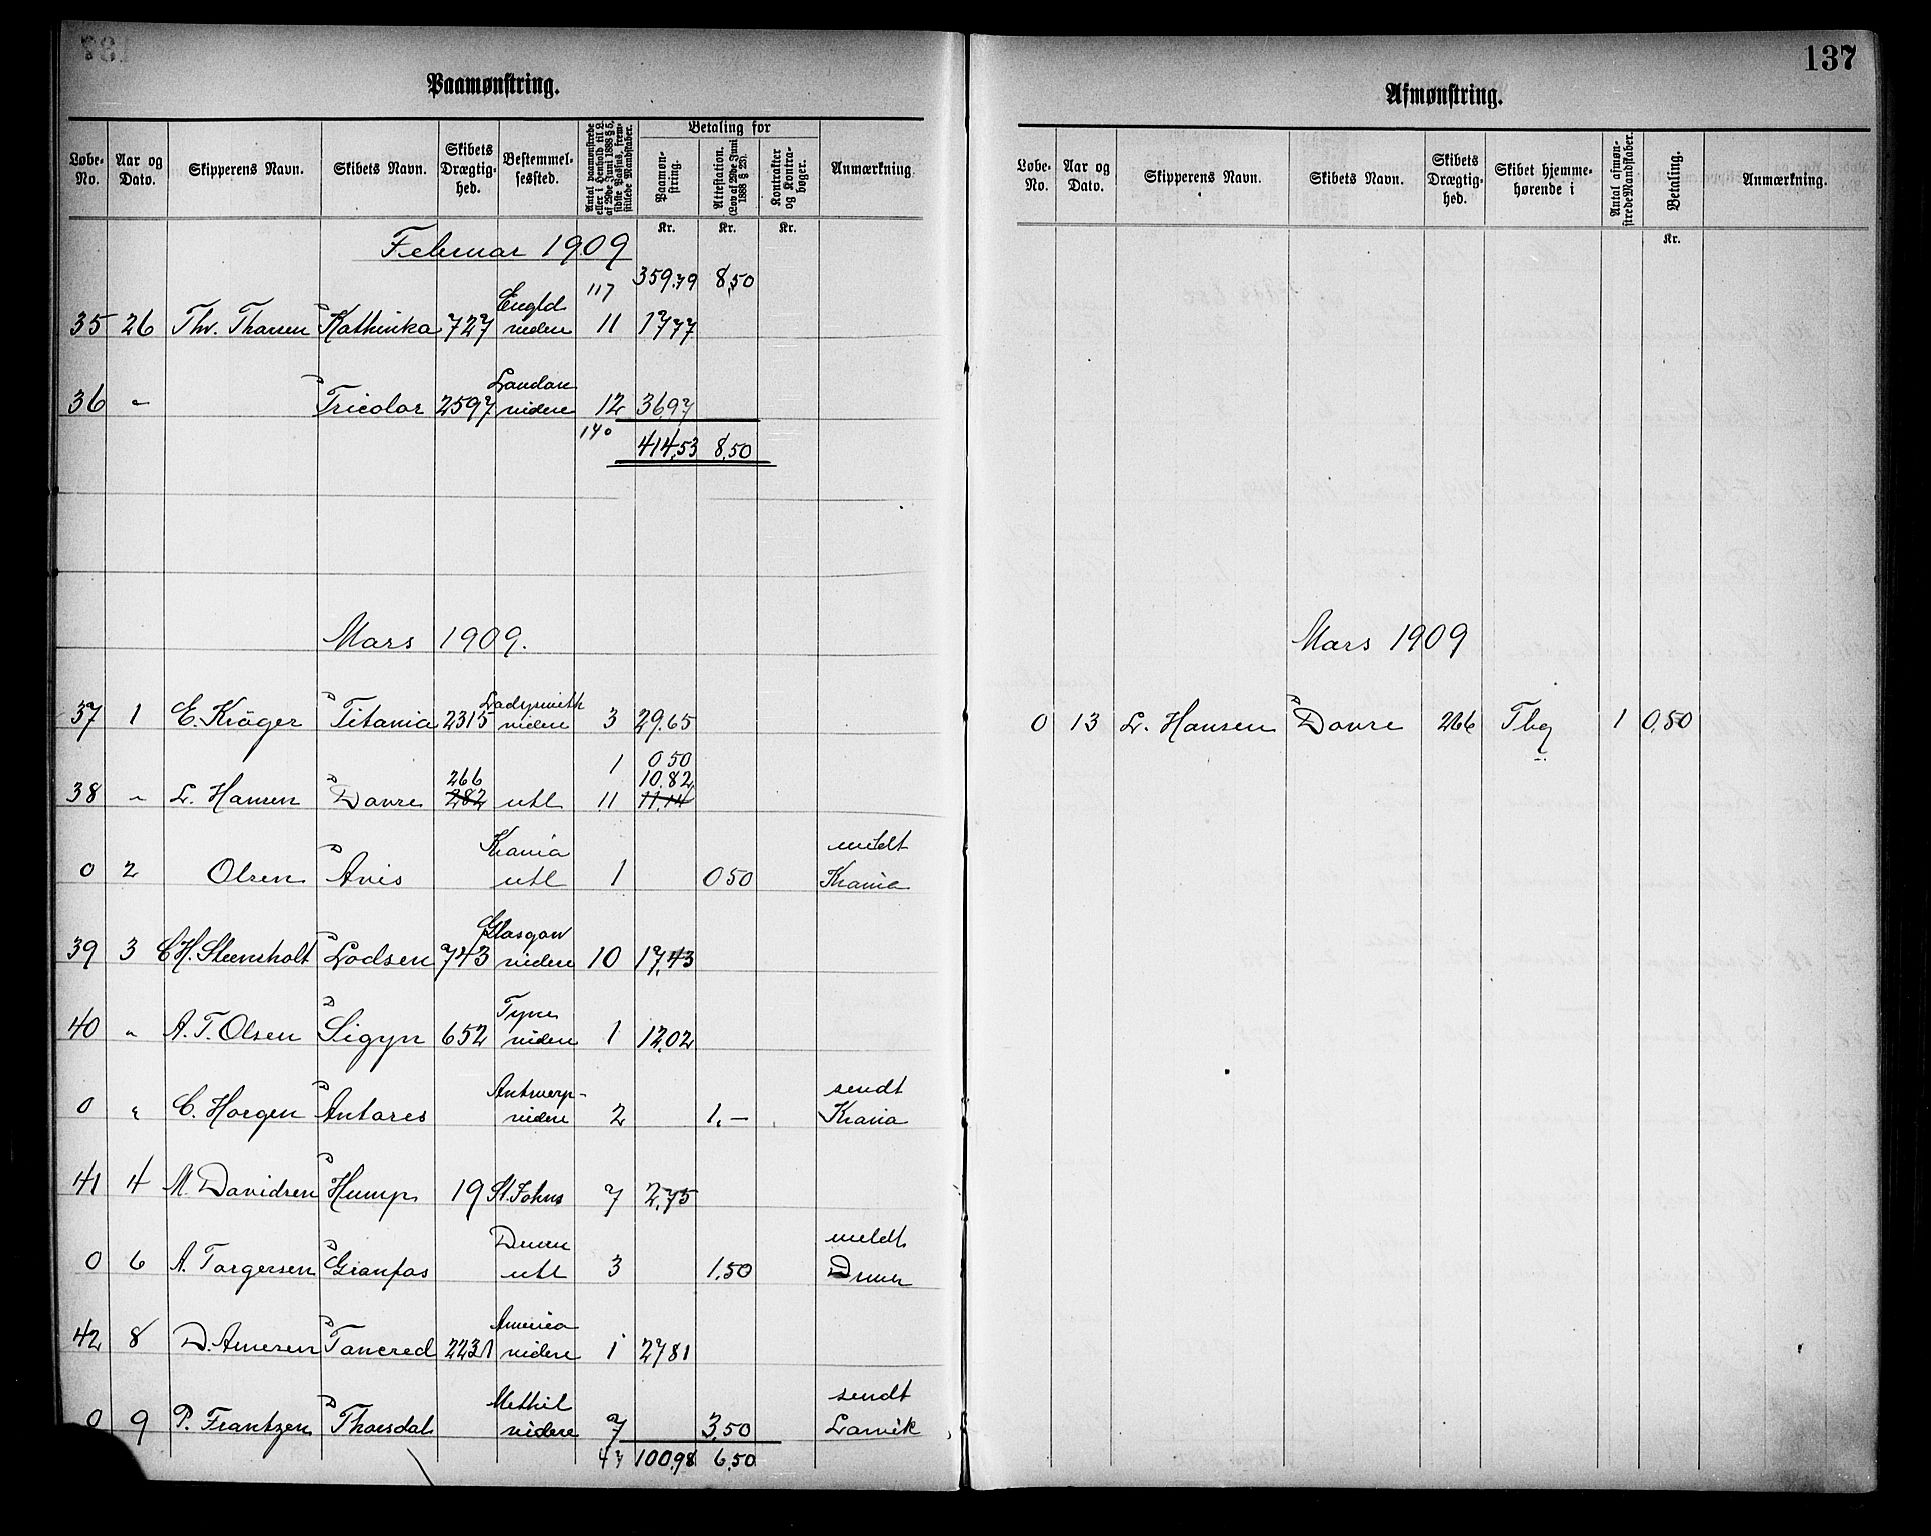 137
Paamønstring.
Løbe-No. Aar og Dato. Skipperens Navn. Skibets Navn. Skibets Drægtighed. Bestemmelsessted. Antal paamønstrede eller i Henhold til L. af 29de Juni 1888 § 5, sidste Passus, fremstillede Mandskaber. Betaling for Paamønstring. Attestation. (Lov af 29de Juni 1888 § 23). Kontrakter og Kontrabøger. Anmærkning.
Kr. Kr. Kr.
Februar 1909
117 359.79 8,50
35 26 Thv. Thorsen Kathinka 727 Engld videre 11 17 77
36 " Tricolor 2597 London videre 12 36,97
140 414,53 8,50
Mars 1909.
37 1 E. Krøger Titania 2315 Ladysmith videre 3 29.65
1 0 50
266 10.82
38 " L. Hansen Dovre 282 utl 11 11.14
0 2 Olsen Avis Krania utl 1 0 50 meldt Krania
39 3 C H. Steensholt Lodsen 743 Glasgow videre 10 17,43
40 " A. T. Olsen Sigyn 652 Tyne videre 1 12,02
0 " C. Horgen Antares Antwerp- videre 2 1,— sendt Krania
41 4 M. Davidsen Hump 19 St. Johns 7 2,75
0 6 A. Torgersen Granfos Dmen utl 3 1,50 meldt Dmen
42 8 D. Arnesen Tancred 2231 America videre 1 27 81
0 9 P. Frantzen Thorsdal Methil videre 7 3,50 sendt Larvik
47 100,98 6,50
137
Afmønstring.
Løbe-No. Aar og Dato. Skipperens Navn. Skibets Navn. Skibets Drægtighed. Skibet hjemmehørende i Antal afmønstrede Mandskaber. Betaling. Anmærkning.
Kr.
Mars 1909
0 13 L. Hansen Dovre 266 Tbg 1 0,50